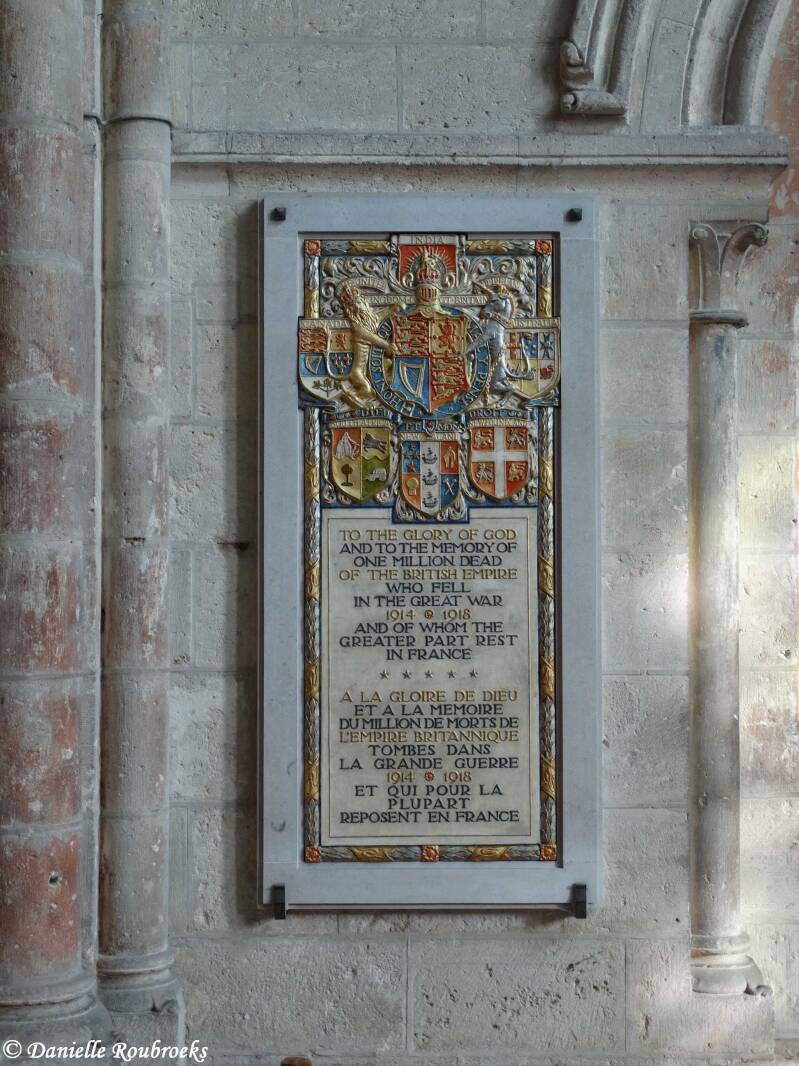 INDIA
UNITED
KINGDOM
BRITAIN
CANADA
AUSTRALIA
HONI SOIT
DIEU
ET MON
DROIT
NEW ZEALAND
NEWFOUNDLAND
TO THE GLORY OF GOD
AND TO THE MEMORY OF
ONE MILLION DEAD
OF THE BRITISH EMPIRE
WHO FELL
IN THE GREAT WAR
1914 1918
AND OF WHOM THE
GREATER PART REST
IN FRANCE
A LA GLOIRE DE DIEU
ET A LA MEMOIRE
DU MILLION DE MORTS DE
L'EMPIRE BRITANNIQUE
TOMBES DANS
LA GRANDE GUERRE
1914 1918
ET QUI POUR LA
PLUPART
REPOSENT EN FRANCE
© Danielle Roubroeks